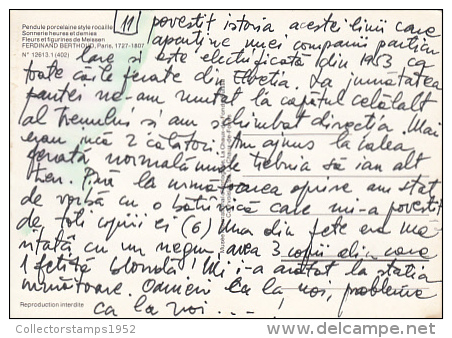 Pendule porcelaine style rocaille
Sonnerie heures et demies
Fleurs et figurines de Meissen
FERDINAND BERTHOUD, Paris, 1727-1807
N° 12613.1 (402)
11 povestif istoria acestei linii care
aparține unei companii particu
lare și este electrificată din 1903 ca
toate căile ferate din Elveția. La jumătatea
pantei ne-am mutat la capătul celălalt
al trenului și am schimbat direcția. Mai
erau încă 2 călători. Am ajuns la calea
ferată normală unde trebuia să iau alt
tren. Până la următoarea oprire am stat
de vorbă cu o bătrânică care mi-a povestit
de toți copiii ei (6) Una din fete era mă
ritată cu un negru avea 3 copii din care
1 fetiță blondă! Mi i-a arătat la stația
următoare. Oameni ca la noi, probleme
ca la noi - - - !
Reproduction interdite
Collectorstamps1952
http://www.delcampe.net